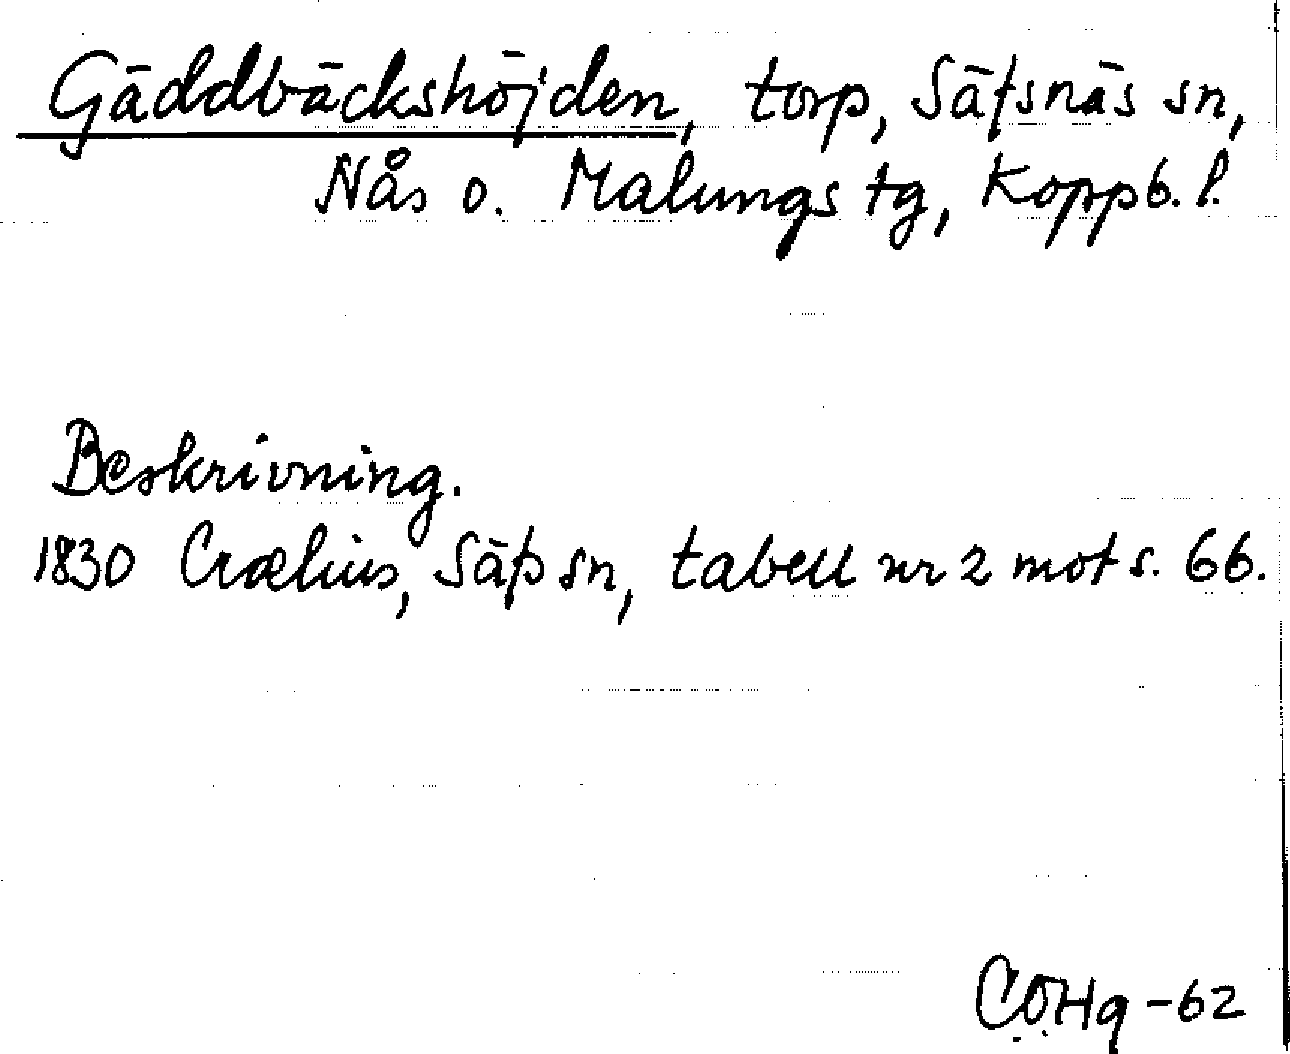 Gäddbäckshöjden, torp, Säfsnäs sn,
Nås o. Malungs tg, Koppb. l.
Beskrivning.
1830 Crælius, Säfs sn, tabell nr 2 mot s. 66.
C.Ö.Hg -62